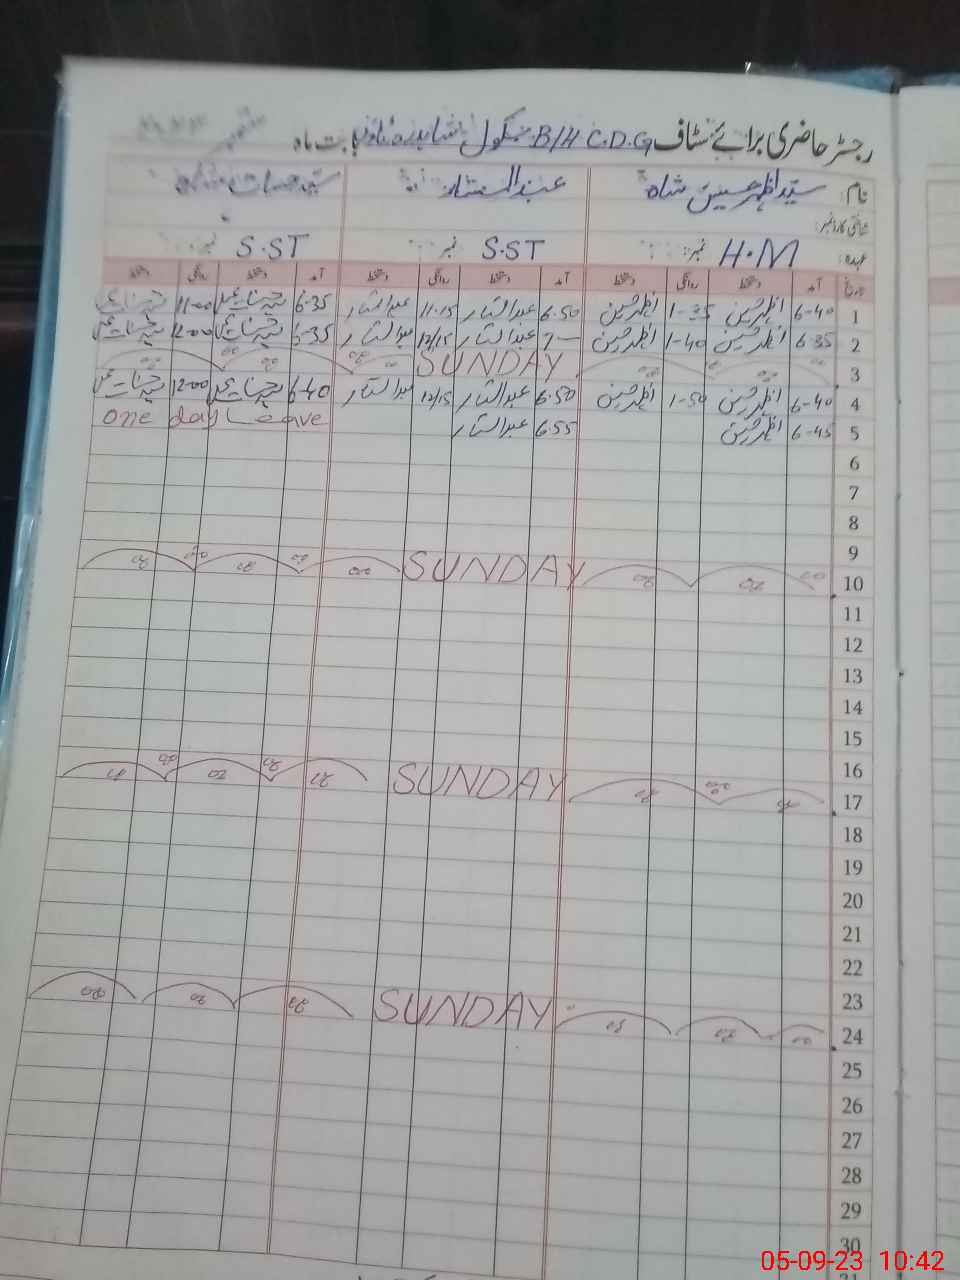 رجسٹر حاضری برائے سٹاف C.D.G B/H سکول شاہدرہ ٹاؤن بابت ماہ ستمبر
نام: سید اظہر حسین شاہ عبدالستار سید حسنات
شناختی کارڈ نمبر:
عہدہ: H.M نمبر: S.ST نمبر: S.ST نمبر:
تاریخ آمد دستخط روانگی دستخط آمد دستخط روانگی دستخط آمد دستخط روانگی دستخط
1 6-40 اظہر حسین 1-35 اظہر حسین 6.50 عبدالستار 11.15 عبدالستار 6-35 11-00
2 6-35 اظہر حسین 1-40 اظہر حسین 7- عبدالستار 12/15 عبدالستار 6-35 12-00
3 SUNDAY
4 6-40 اظہر حسین 1-50 اظہر حسین 6.50 عبدالستار 12/15 عبدالستار 6-40 12-00
5 6-45 اظہر حسین 6.55 عبدالستار One day Leave
6
7
8
9
10 SUNDAY
11
12
13
14
15
16
17 SUNDAY
18
19
20
21
22
23
24 SUNDAY
25
26
27
28
29
30
05-09-23 10:42